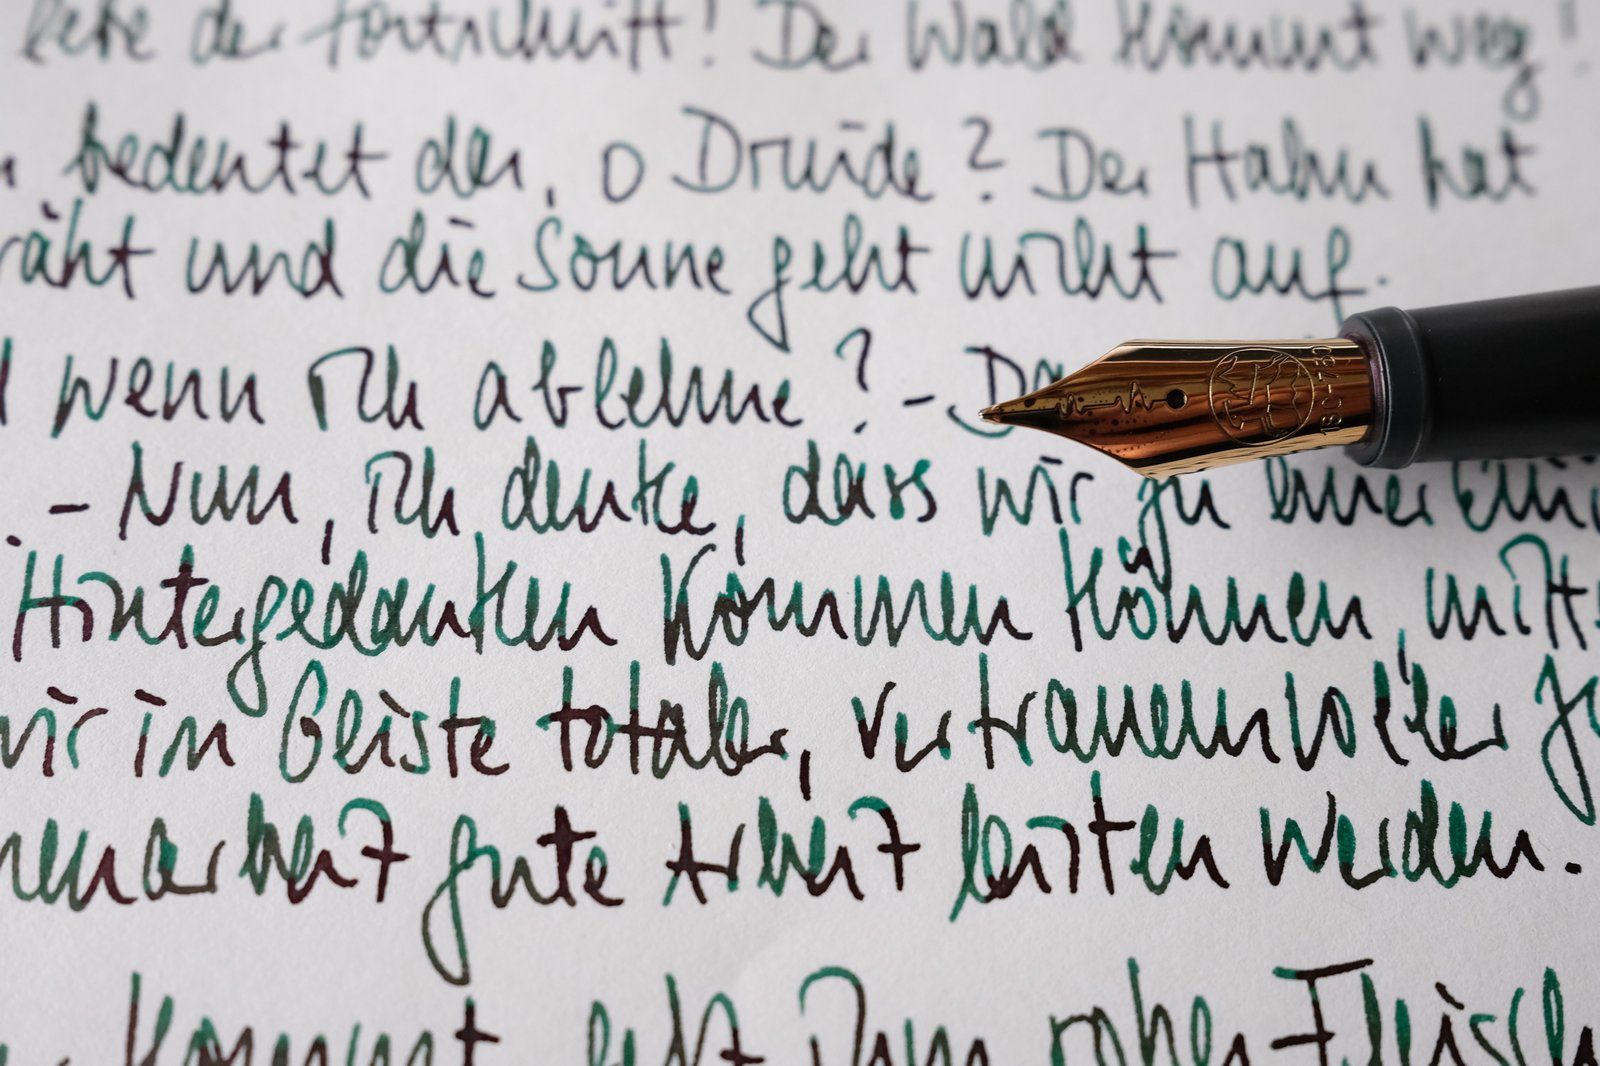 lebe der Fortschritt! Der Wald kommt weg!
bedeutet der, o Druide? Der Hahn hat
räht und die Sonne geht nicht auf.
wenn ich ablehne? - Da
- Nun, ich denke, dass wir zu einer Eini
Hintergedanken kommen können, mitt
wir in Geiste totaler, vertrauensvoller Zu
menarbeit gute Arbeit leisten werden.
Kommt jetzt Dein rohes Fleisch
1.80-730